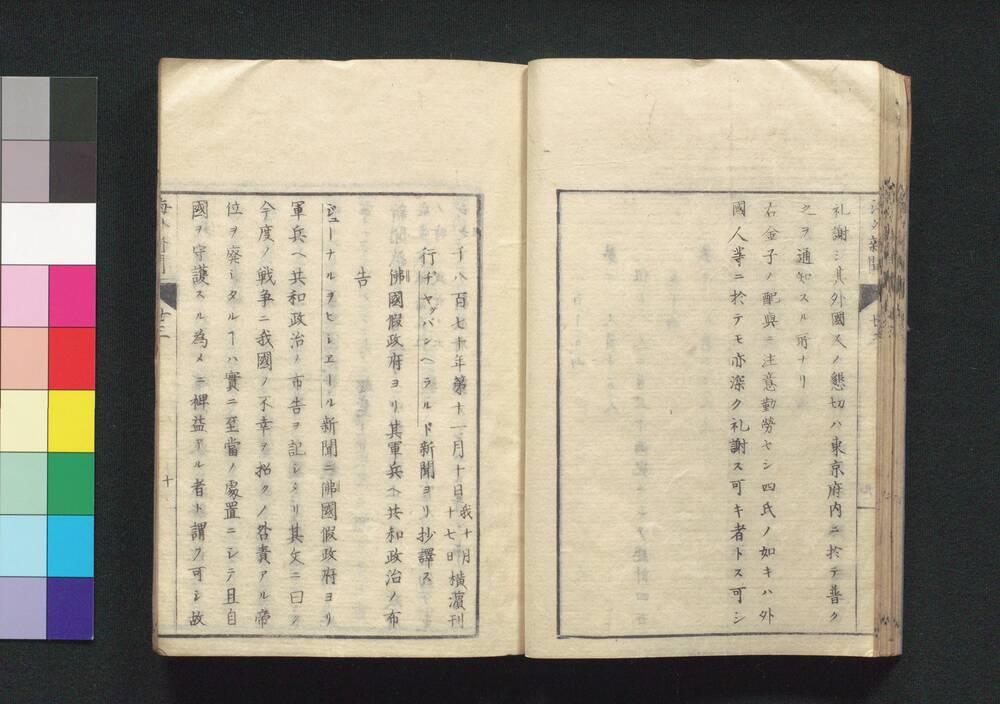 礼謝シ其外國人ノ懇切ハ東京府内ニ於テ普ク
之ヲ通知スル所ナリ
右金子ノ配與ニ注意勤勞セシ四氏ノ如キハ外
國人等ニ於テモ亦深ク礼謝ス可キ者トス可シ
千八百七十年第十一月十日我十月十七日横濵刊
行チヤッパンヘラルド新聞ヨリ抄譯ス
佛國假政府ヨリ其軍兵ヘ共和政治ノ布
告
ジューナルヲヒシエール新聞ニ佛國假政府ヨリ
軍兵ヘ共和政治ノ布告ヲ記シタリ其文ニ曰ク
今度ノ戦争ニ我國ノ不幸ヲ招クノ咎責アル帝
位ヲ廃シタルヿハ實ニ至當ノ處置ニシテ且自
國ヲ守護スル為メニ裨益アル者ト謂フ可シ故
十